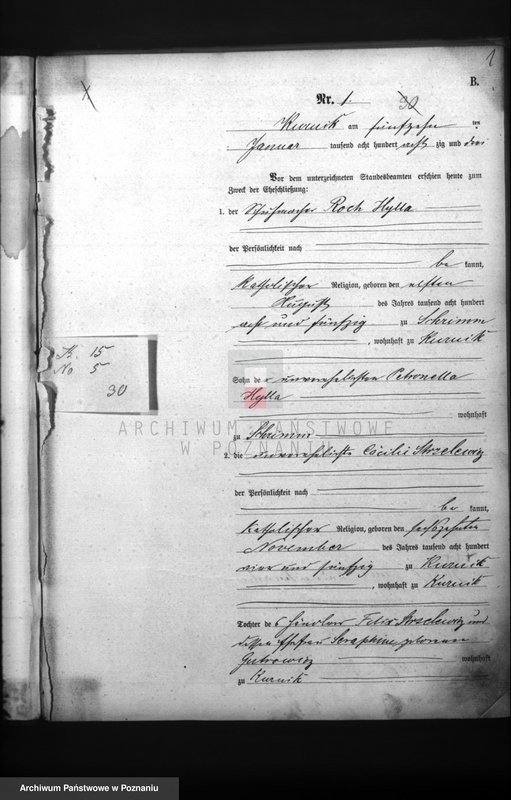 1
B.
Nr. 1. 30
Kurnik am fünfzehn ten
Januar tausend acht hundert achtzig und drei
Vor dem unterzeichneten Standesbeamten erschien heute zum
Zweck der Eheschließung:
1. der Schuhmacher Roch Hylla
der Persönlichkeit nach
be kannt,
katholischer Religion, geboren den elften
August des Jahres tausend acht hundert
acht und fünfzig zu Schrimm
, wohnhaft zu Kurnik
Sohn der unverehelichten Petronella
Hylla
wohnhaft
zu Schrimm
2. die unverehelichte Cäcilie Strzelewicz
der Persönlichkeit nach
be kannt,
katholischer Religion, geboren den sechszehnten
November des Jahres tausend acht hundert
vier und fünfzig zu Kurnik
, wohnhaft zu Kurnik
Tochter des Felix Strzelewicz und
dessen Ehefrau Seraphine geborenen
wohnhaft
zu Kurnik
K. 15
No 5
30
ARCHIWUM PAŃSTWOWE
W POZNANIU
Archiwum Państwowe w Poznaniu